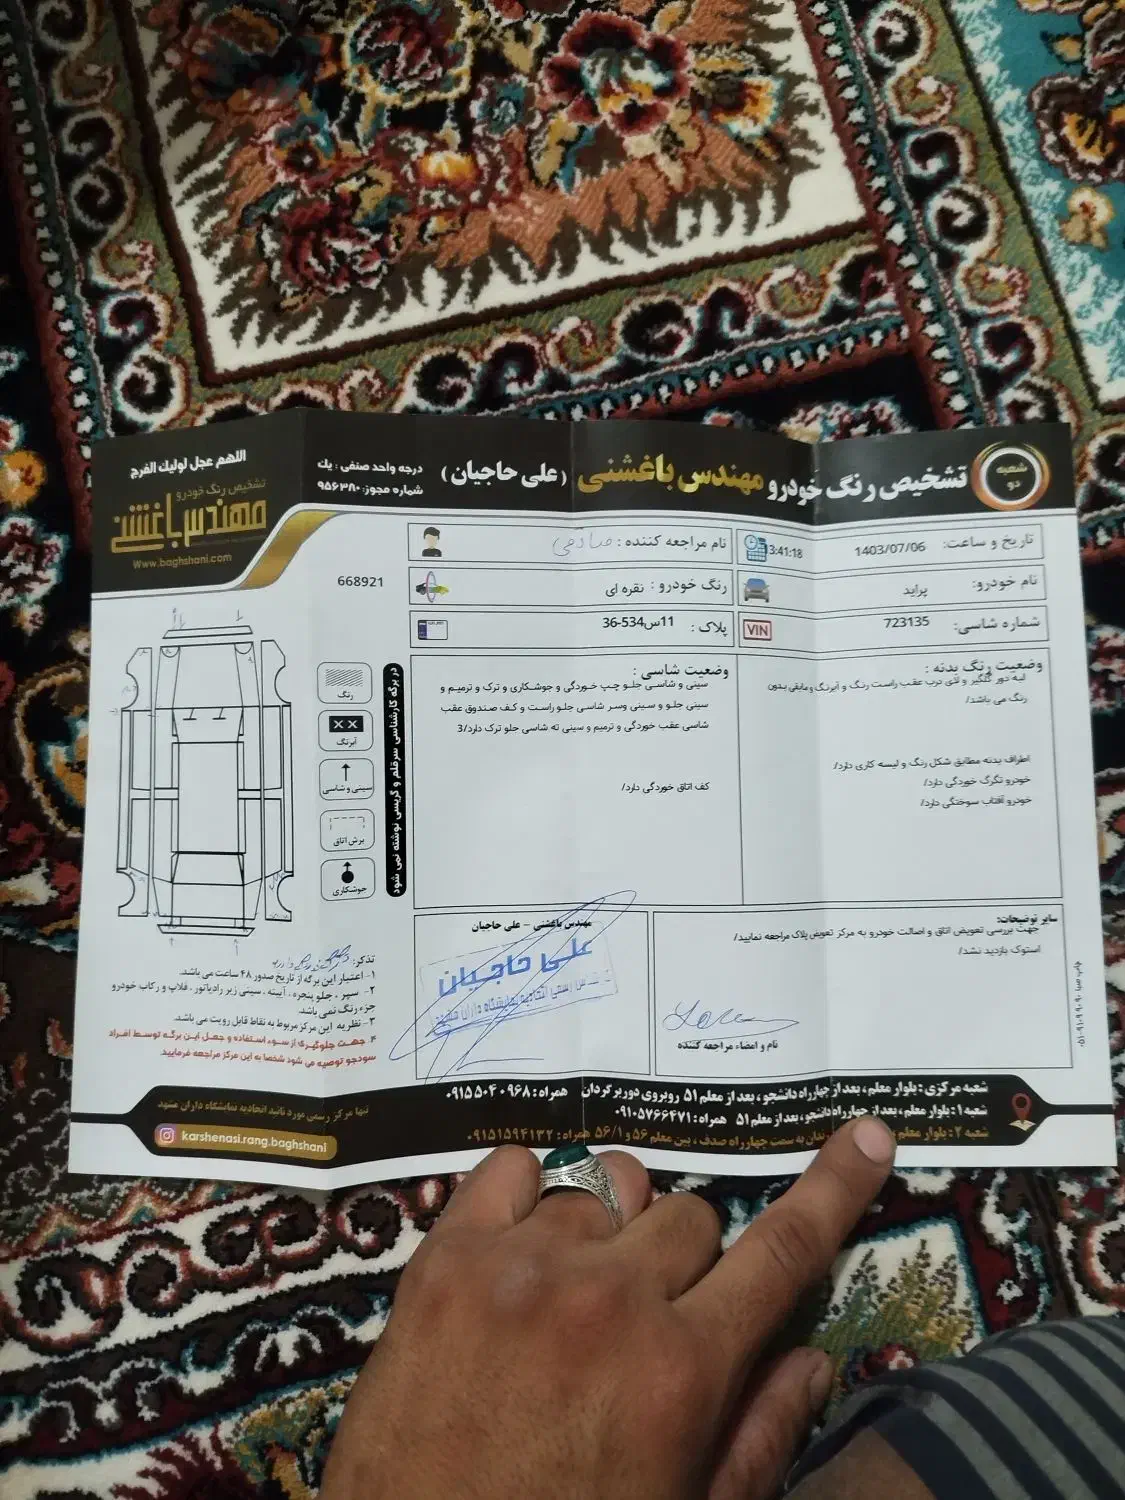 شعبه دو
تشخیص رنگ خودرو مهندس باغشنی (علی حاجیان)
درجه واحد صنفی : یک
شماره مجوز: ۹۵۶۳۸۰
اللهم عجل لولیک الفرج
تشخیص رنگ خودرو
مهندس باغشنی
Www.baghshani.com
تاریخ و ساعت: 1403/07/06 3:41:18
نام مراجعه کننده : صادقی
نام خودرو: پراید
رنگ خودرو : نقره ای
668921
شماره شاسی: 723135
VIN
پلاک : 11س534-36
وضعیت رنگ بدنه :
لبه دور گلگیر و لای درب عقب راست رنگ و آبرنگ ومابقی بدون
رنگ می باشد/
اطراف بدنه مطابق شکل رنگ و لیسه کاری دارد/
خودرو تگرگ خوردگی دارد/
خودرو آفتاب سوختگی دارد/
وضعیت شاسی :
سینی و شاسی جلو چپ خوردگی و جوشکاری و ترک و ترمیم و
سینی جلو و سینی وسر شاسی جلو راست و کف صندوق عقب
شاسی عقب خوردگی و ترمیم و سینی ته شاسی جلو ترک دارد/3
کف اتاق خوردگی دارد/
در برگه کارشناسی سرقلم و گریسی نوشته نمی شود
رنگ
آبرنگ
سینی و شاسی
برش اتاق
جوشکاری
سایر توضیحات:
جهت بررسی تعویض اتاق و اصالت خودرو به مرکز تعویض پلاک مراجعه نمایید/
استوک بازدید نشد/
نام و امضاء مراجعه کننده
مهندس باغشنی - علی حاجیان
علی حاجیان
تذکر:
۱- اعتبار این برگه از تاریخ صدور ۴۸ ساعت می باشد.
۲- سپر ، جلو پنجره ، آیینه ، سینی زیر رادیاتور ، فلاپ و رکاب خودرو
جزء رنگ نمی باشد.
۳- نظریه این مرکز مربوط به نقاط قابل رویت می باشد.
۴. جهت جلوگیری از سوء استفاده و جعل این برگه توسط افراد
سودجو توصیه می شود شخصا به این مرکز مراجعه فرمایید.
شعبه مرکزی : بلوار معلم ، بعد از چهارراه دانشجو ، بعد از معلم ۵۱ روبروی دوربرگردان همراه : ۰۹۱۵۵۰۴۰۹۶۸
شعبه ۱ : بلوار معلم ، بعد از چهارراه دانشجو ، بعد از معلم ۵۱ همراه : ۰۹۱۰۵۷۶۶۴۷۱
شعبه ۲ : بلوار معلم به سمت چهارراه صدف ، بین معلم ۵۶ و ۵۶/۱ همراه : ۰۹۱۵۱۵۹۴۱۳۲
تنها مرکز رسمی مورد تائید اتحادیه نمایشگاه داران مشهد
karshenasi.rang.baghshani